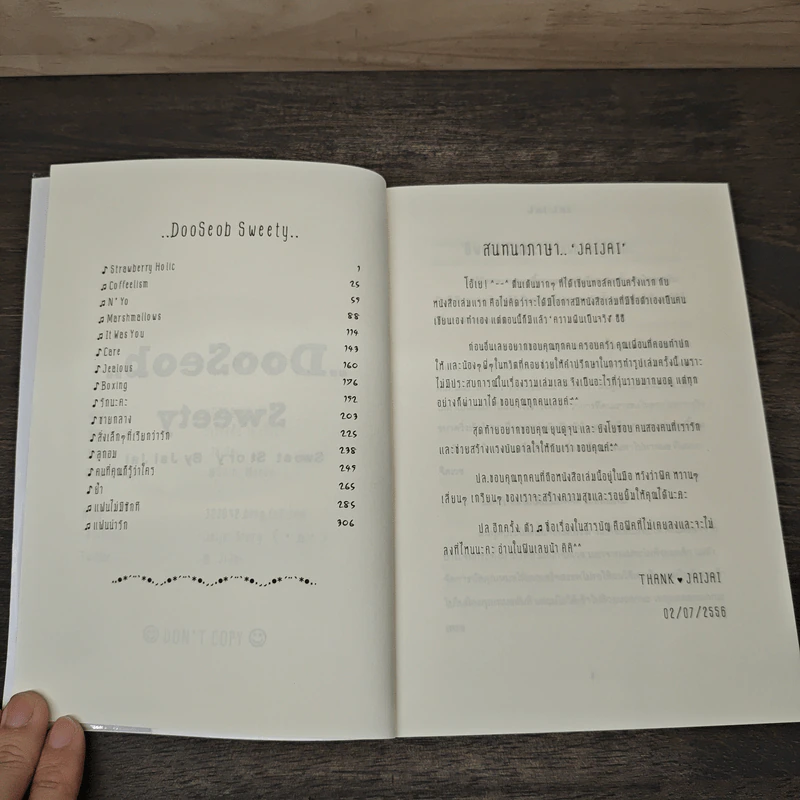 ..DooSeob Sweety..
♪ Strawberry Holic 1
♫ Coffeelism 25
♫ N' Yo 59
♫ Marshmallows 88
♫ It Was You 114
♪ Care 143
♪ Jealous 160
♪ Boxing 176
♪ รักนะคะ 192
♪ ชายกลาง 207
♪ สิ่งเล็กๆที่เรียกว่ารัก 225
♪ ลูกอม 238
♪ คนที่คุณก็รู้ว่าใคร 249
♪ ย้ำ 265
♫ แฟนไม่มีซักที 285
♫ แฟนน่ารัก 306
สนทนาภาษา.. 'JAIJAI'
โอ้เย! ^--^ ตื่นเต้นมากๆ ที่ได้เขียนทอล์คเป็นครั้งแรก กับ
หนังสือเล่มแรก คือไม่คิดว่าจะได้มีโอกาสมีหนังสือเล่มที่มีชื่อตัวเองเป็นคน
เขียนเอง ทำเอง แต่ตอนนี้ก็มีแล้ว 'ความฝันเป็นจริง' ฮีฮี
ก่อนอื่นเลยอยากขอบคุณทุกคน ครอบครัว คุณเพื่อนที่คอยทำปก
ให้ และน้องๆพี่ๆในทวิตที่คอยช่วยให้คำปรึกษาในการทำรูปเล่มครั้งนี้ เพราะ
ไม่มีประสบการณ์ในเรื่องรวมเล่มเลย จึงเป็นอะไรที่วุ่นวายมากพอดู แต่ทุก
อย่างก็ผ่านมาได้ ขอบคุณทุกคนเลยค่ะ^^
สุดท้ายอยากขอบคุณ ยุนดูจุน และ ยังโยซอบ คนสองคนที่เรารัก
และช่วยสร้างแรงบันดาลใจให้กับเรา ขอบคุณค่ะ^^
ปล.ขอบคุณทุกคนที่ถือหนังสือเล่มนี้อยู่ในมือ หวังว่าฟิค หวานๆ
เลี่ยนๆ เกรียนๆ ของเราจะสร้างความสุขและรอยยิ้มให้คุณได้นะคะ
ปล.อีกครั้ง ตัว ♫ ชื่อเรื่องในสารบัญ คือฟิคที่ไม่เคยลงและจะไม่
ลงที่ไหนนะคะ อ่านในฟินเลยน้า คิคิ^^
THANK ♥ JAIJAI
02/07/2556